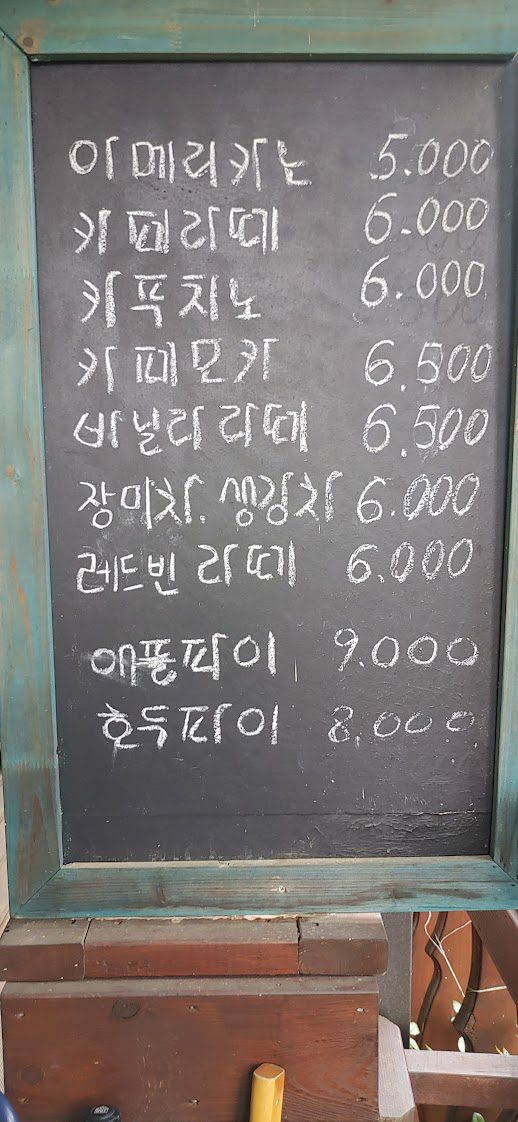 아메리카노 5.000
카페라떼 6.000
카푸치노 6.000
카페모카 6.500
바닐라라떼 6.500
장미차. 생강차 6.000
레드빈 라떼 6.000
애플파이 9.000
호두파이 8.000